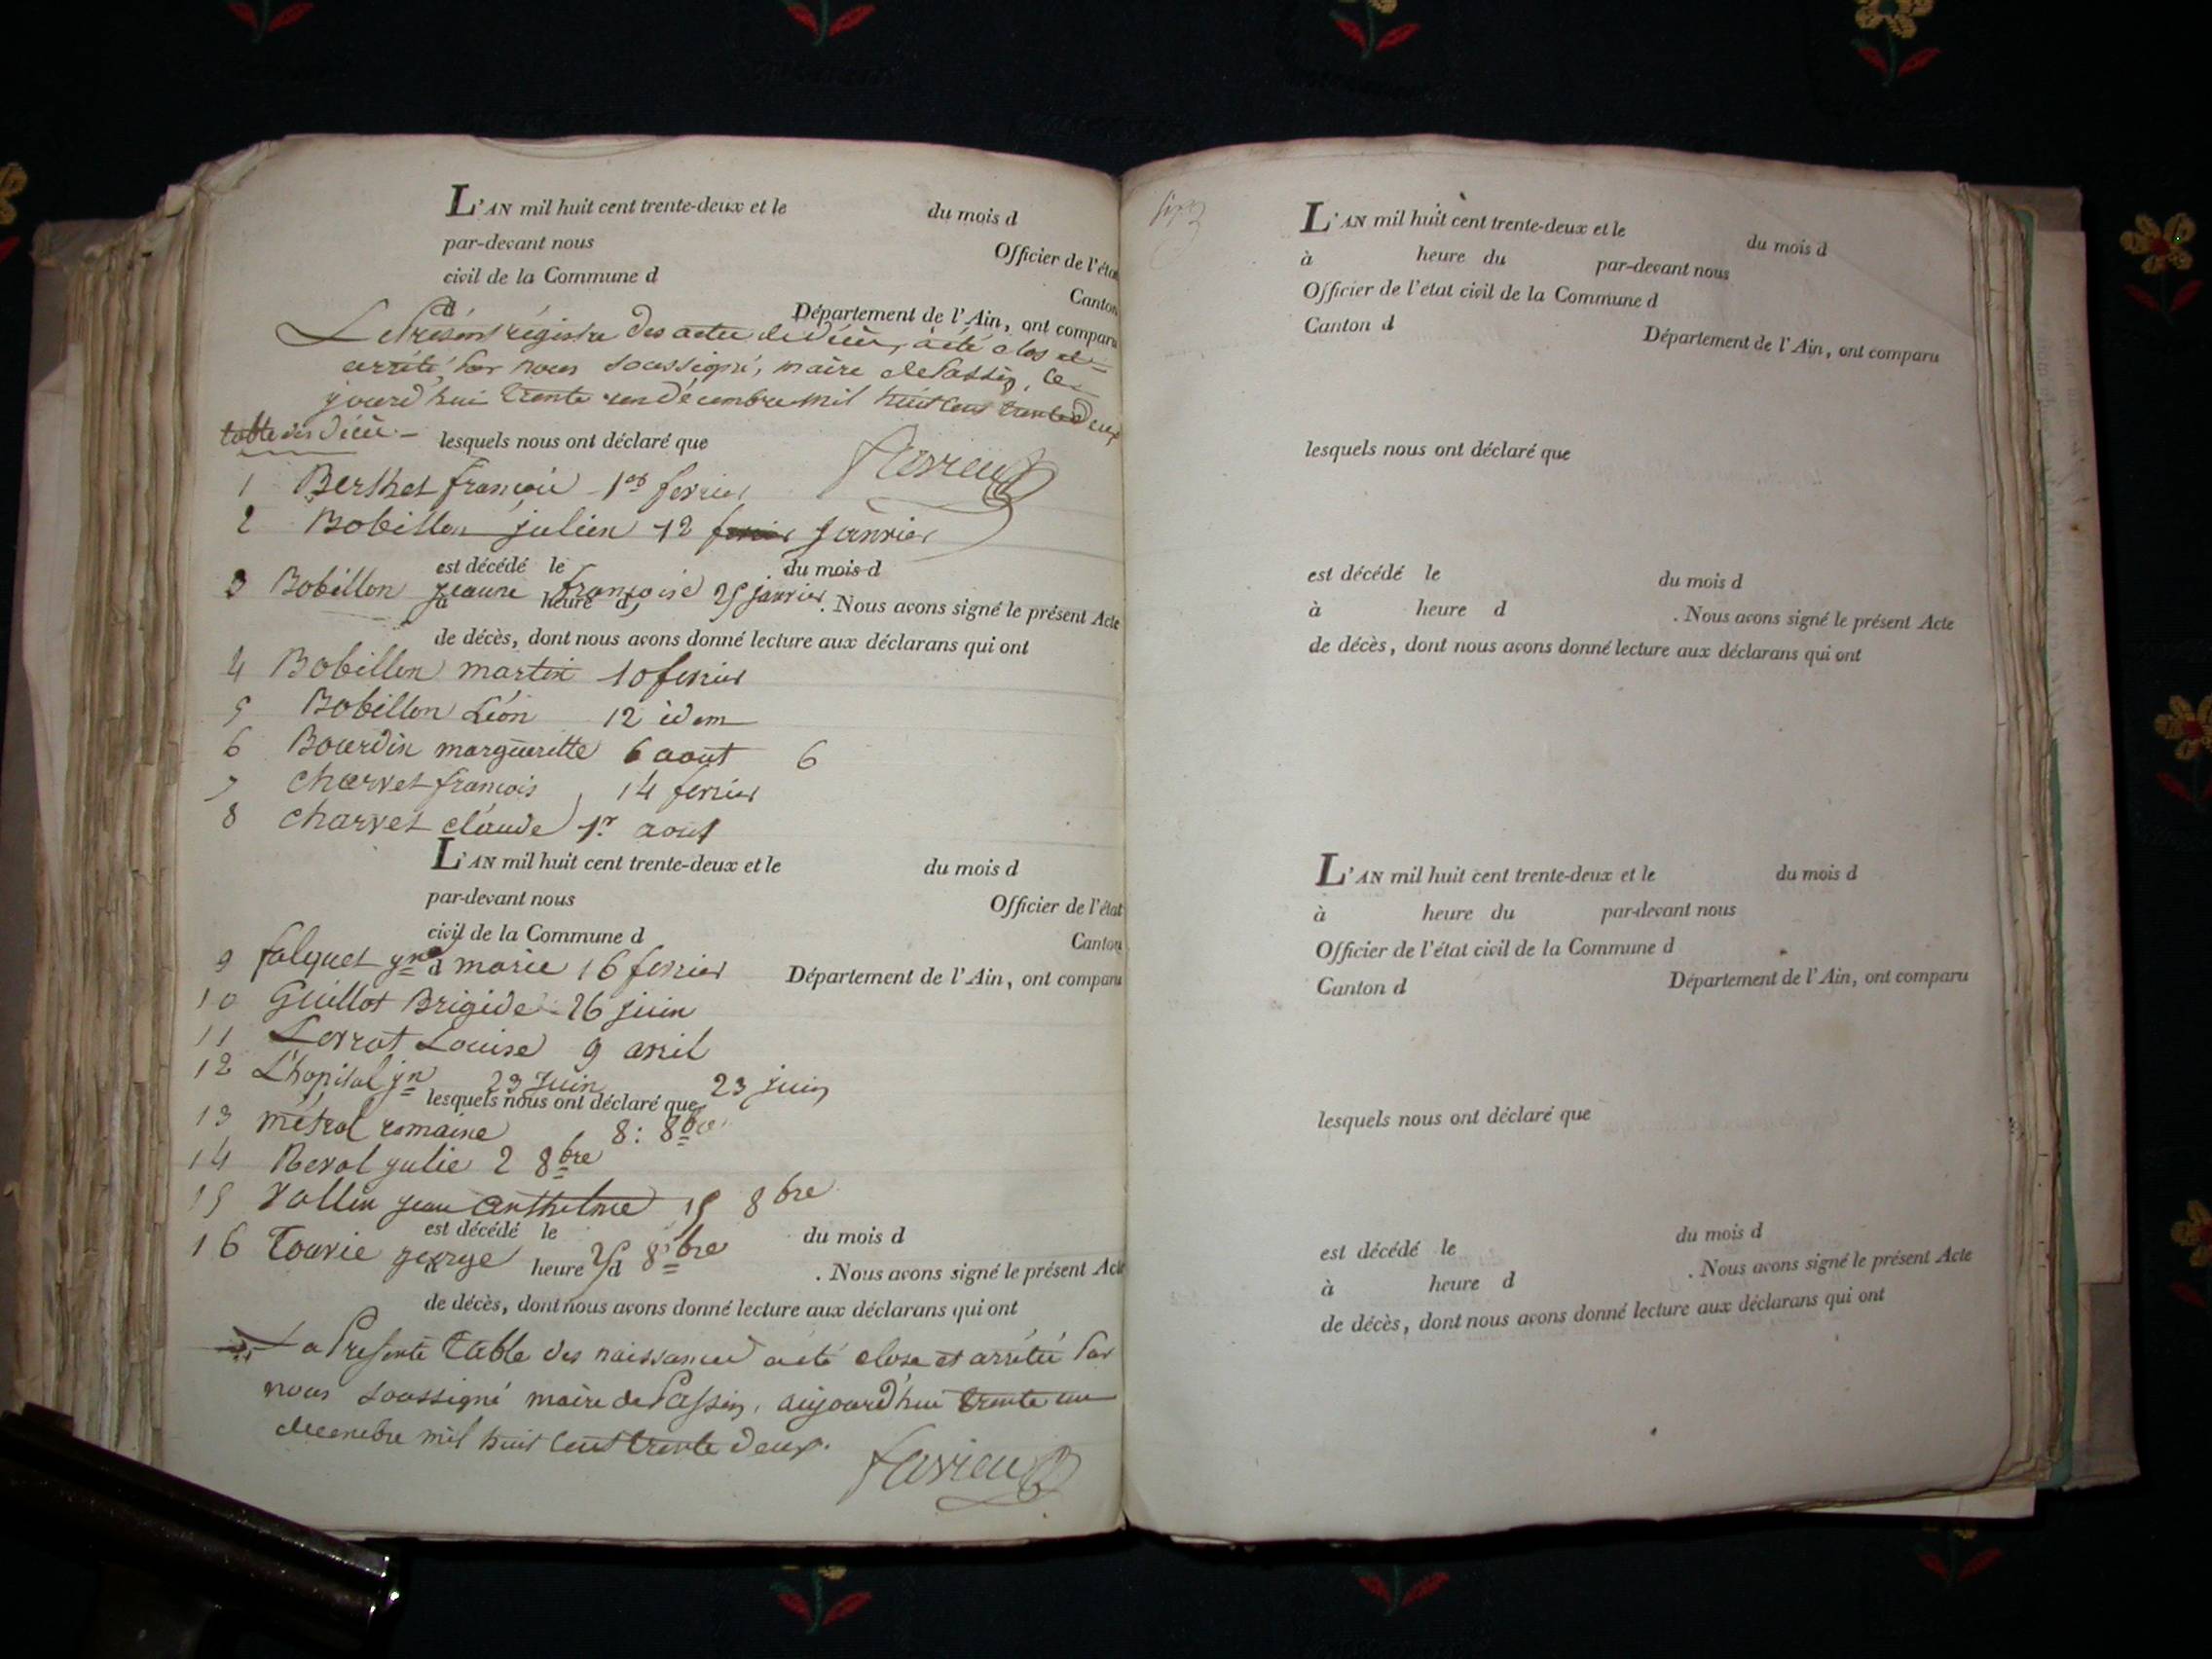 L'AN mil huit cent trente-deux et le du mois d
par-devant nous Officier de l'état
civil de la Commune d Canton
d Département de l'Ain, ont comparu
Le Présent régistre des actes de décès, a été clos et
arrêté par nous soussigné, maire de Passin, ce
jourd'hui trente un décembre mil huit cent trente deux
table des décès.
lesquels nous ont déclaré que
1 Berthet françois 1er fevrier
2 Bobillon julien 12 janvier
est décédé le du mois d
3 Bobillon jeanne françoise 25 janvier
à heure d . Nous avons signé le présent Acte
de décès, dont nous avons donné lecture aux déclarans qui ont
4 Bobillon martin 10 fevrier
5 Bobillon Léon 12 idem
6 Bourdin margueritte 6 aout 6
7 charvet françois 14 fevrier
8 charvet claude 1r aout
L'AN mil huit cent trente-deux et le du mois d
par-devant nous Officier de l'état
civil de la Commune d Canton
d Département de l'Ain, ont comparu
9 falquet jne marie 16 fevrier
10 Guillot Brigide 26 juin
11 Louise 9 avril
12 L'hopital jn 23 Juin 23 juin
lesquels nous ont déclaré que
13 métral romaine 8: 8bre
14 Reval julie 2 8bre
15 Vallin jean anthelme 15 8bre
est décédé le du mois d
16 Tournie george 25 8bre
à heure d . Nous avons signé le présent Acte
de décès, dont nous avons donné lecture aux déclarans qui ont
La Presente table des naissances a été close et arrêtée par
nous soussigné maire de Passin, aujourd'hui trente un
decembre mil huit cent trente deux.
L'AN mil huit cent trente-deux et le du mois d
à heure du par-devant nous
Officier de l'état civil de la Commune d
Canton d Département de l'Ain, ont comparu
lesquels nous ont déclaré que
est décédé le du mois d
à heure d . Nous avons signé le présent Acte
de décès, dont nous avons donné lecture aux déclarans qui ont
L'AN mil huit cent trente-deux et le du mois d
à heure du par-devant nous
Officier de l'état civil de la Commune d
Canton d Département de l'Ain, ont comparu
lesquels nous ont déclaré que
est décédé le du mois d
à heure d . Nous avons signé le présent Acte
de décès, dont nous avons donné lecture aux déclarans qui ont